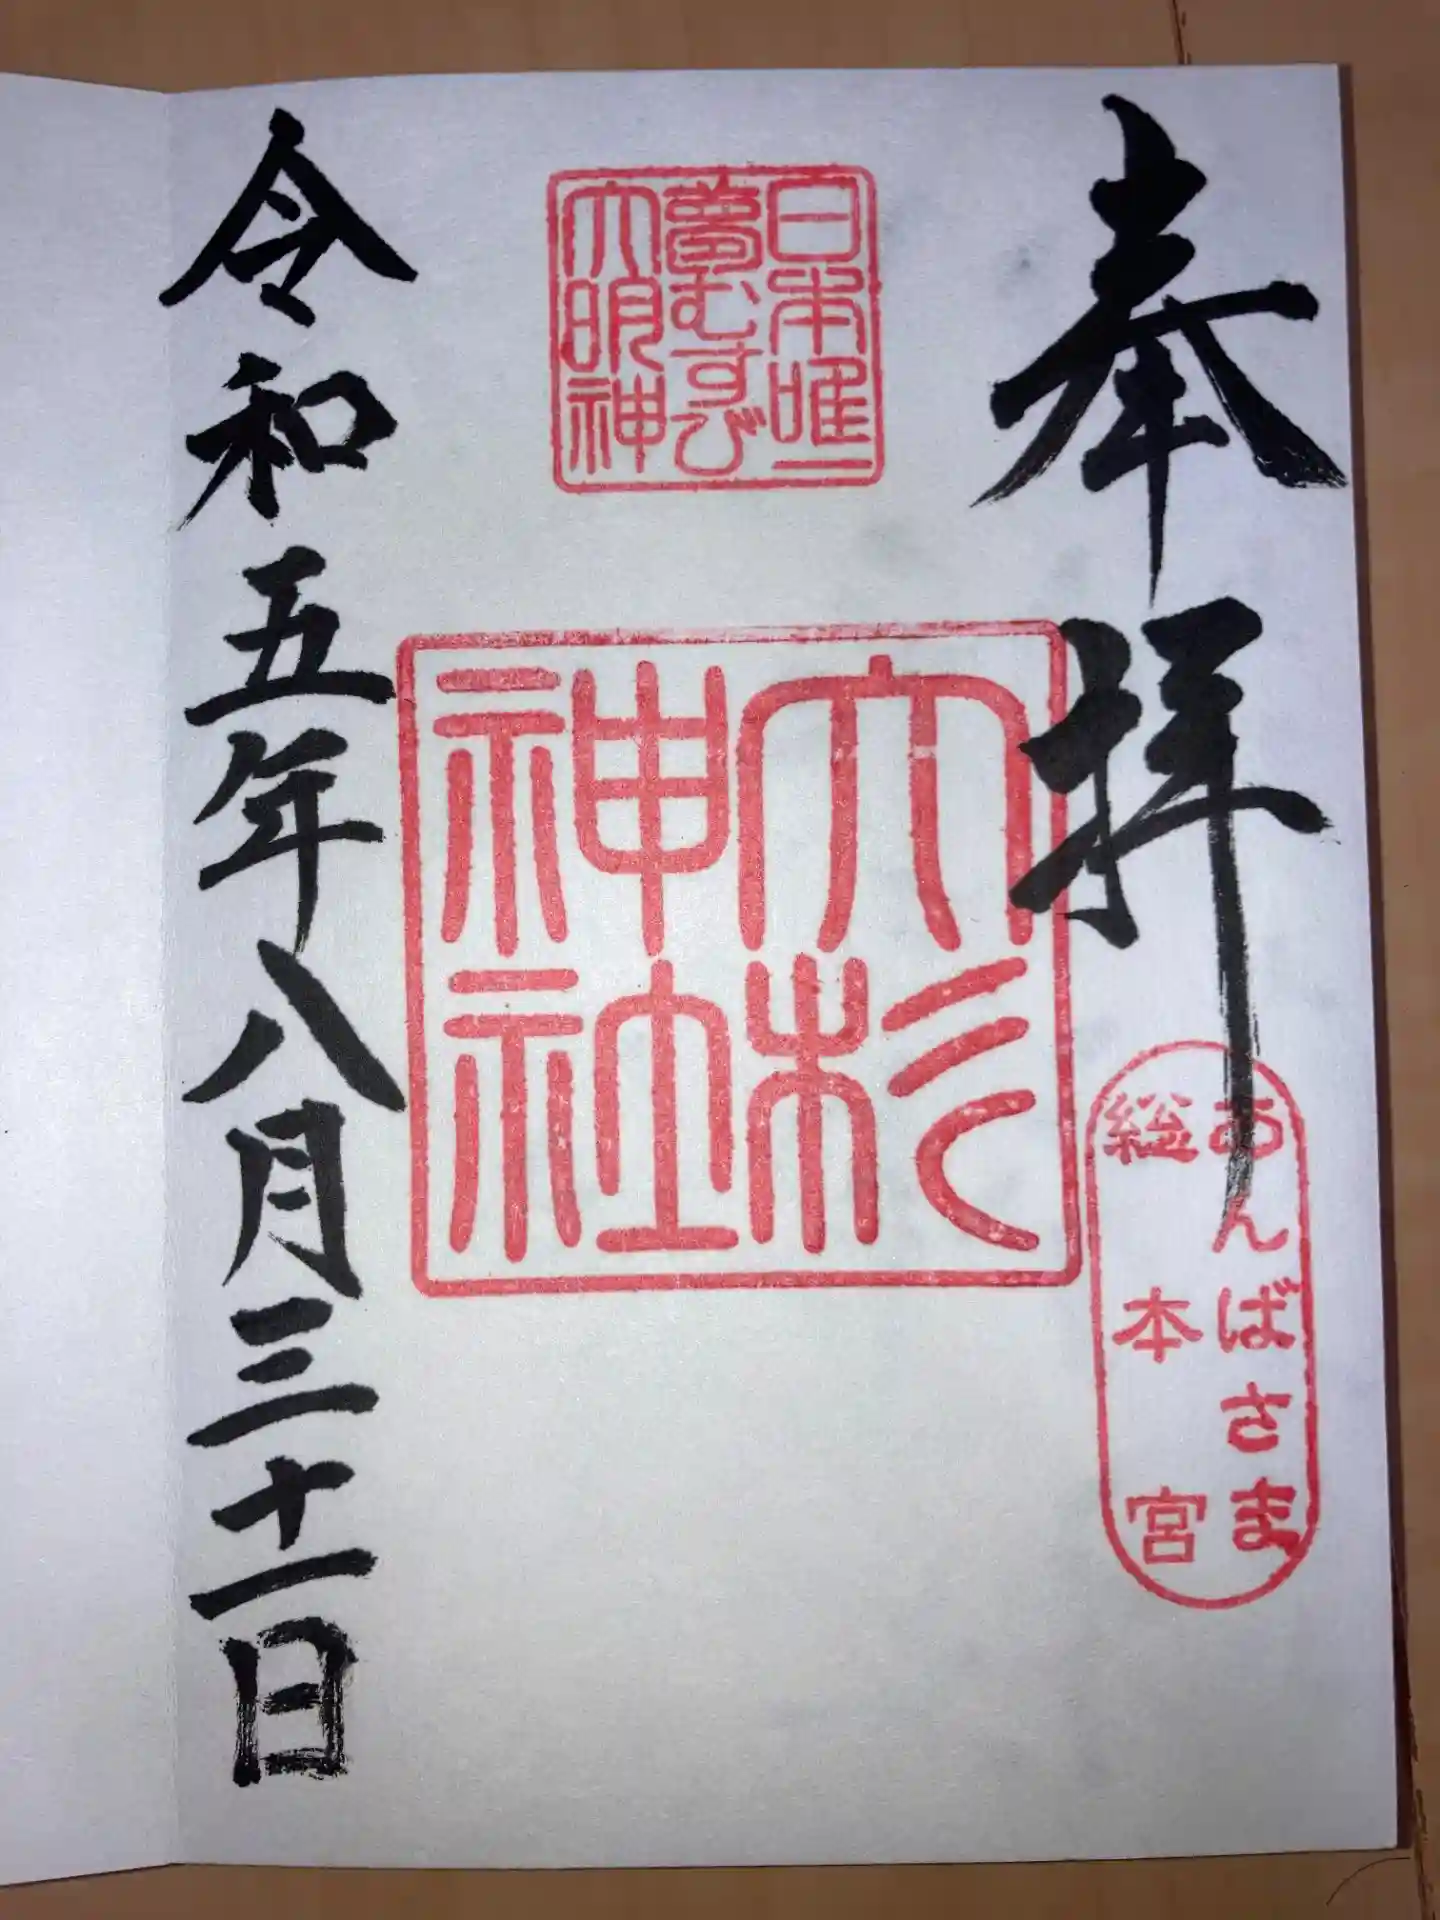 奉拝
あんばさま
総本宮
日本唯一
夢むすび
大明神
大杉
神社
令和五年八月三十一日